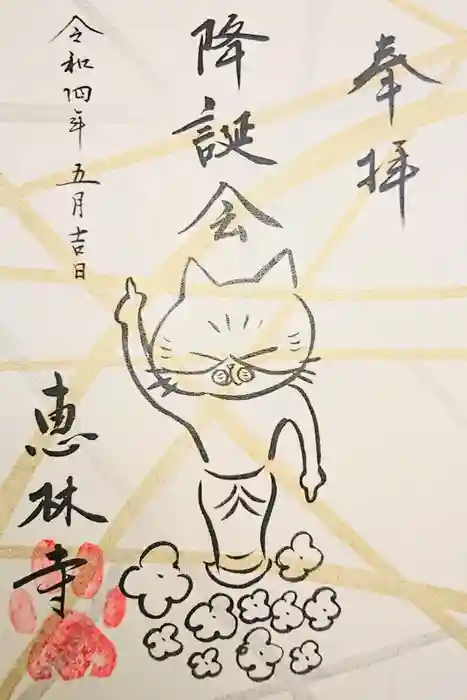 奉拝
降誕会
令和四年 五月吉日
恵林寺